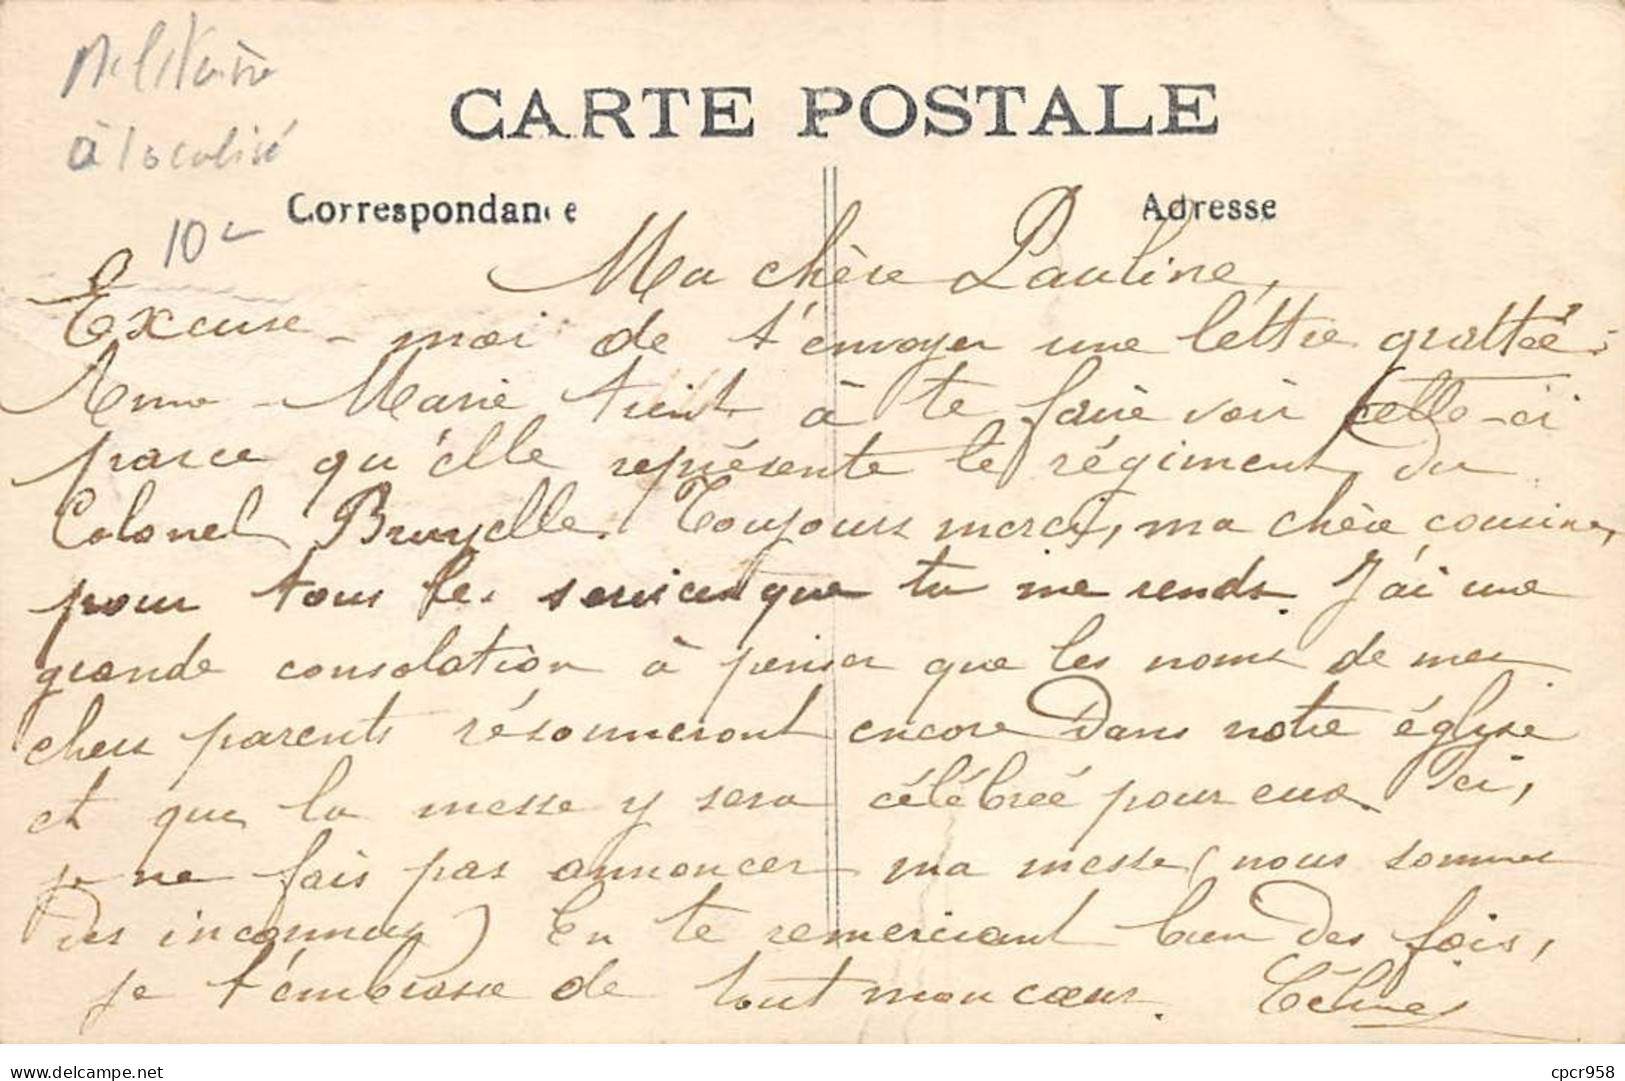 Militaire
à localisé
CARTE POSTALE
Correspondance
Adresse
10
Ma chère Pauline,
Excuse-moi de t'envoyer une lettre grattée:
Anna-Marie tient à te faire voir celle-ci
parce qu'elle représente le régiment du
Colonel Bruyelle. Toujours merci, ma chère cousine,
pour tous les services que tu me rends. J'ai une
grande consolation à penser que les noms de mes
chers parents résonneront encore dans notre église
et que la messe y sera célébrée pour eux. Ici,
je ne fais pas annoncer ma messe (nous sommes
des inconnus) En te remerciant bien des fois,
je t'embrasse de tout mon coeur.
delcampe.net
cpcr958